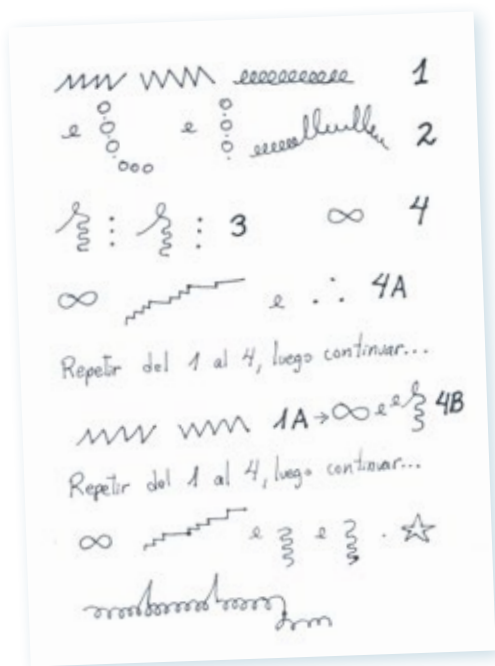 1
2
3 4
4A
Repetir del 1 al 4, luego continuar...
1A → ∞ e e 4B
Repetir del 1 al 4, luego continuar...